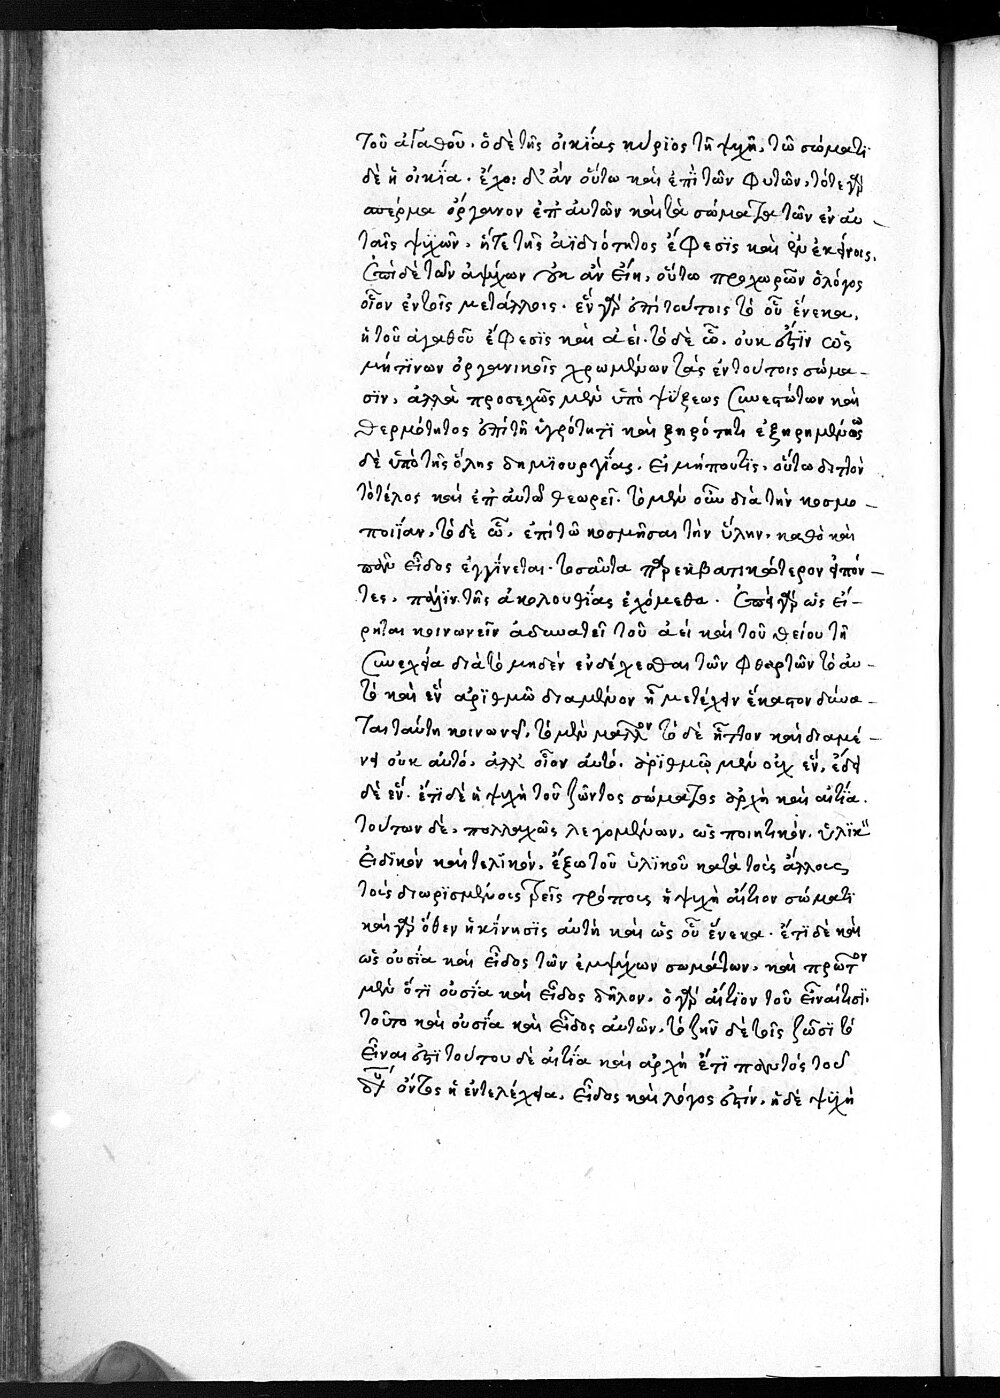 τοῦ ἀγαθοῦ. ὁ δὲ τῆς οἰκίας κύριος τῇ ψυχῇ, τῷ σώματι
δὲ ἡ οἰκία. ἔχοι δ' ἂν οὕτω καὶ ἐπὶ τῶν φυτῶν, τό τε γὰρ
σπέρμα ὄργανον ἐπ' αὐτῶν καὶ τὰ σώματα τῶν ἐν αὐ-
ταῖς ψυχῶν, ἥ τε τῆς ἀϊδιότητος ἔφεσις καὶ ἐν ἐκείνοις.
ἐπὶ δὲ τῶν ἀψύχων οὐκ ἂν εἴη, οὕτω προχωρῶν ὁ λόγος
οἷον ἐν τοῖς μετάλλοις. ἓν γὰρ ἐπὶ τούτοις τὸ οὗ ἕνεκα,
ἡ τοῦ ἀγαθοῦ ἔφεσις καὶ ἀεί. τὸ δὲ ᾧ, οὐκ ἔστιν ὡς
μή τινων ὀργανικοῖς χρωμένων τὰς ἐν τούτοις σώμα-
σιν, ἀλλὰ προσεχῶς μὲν ὑπὸ ψύξεως συνεστώτων καὶ
θερμότητος ἐπὶ τῇ ὑγρότητι καὶ ξηρότητι ἐξῃρημένως
δὲ ὑπὸ τῆς ὅλης δημιουργίας. εἰ μή πού τις, οὕτω διττὸν
τὸ τέλος καὶ ἐπ' αὐτῶν θεωρεῖ. τὸ μὲν οὖν διὰ τὴν κοσμο
ποιΐαν, τὸ δὲ ᾧ, ἐπὶ τῷ κοσμῆσαι τὴν ὕλην, καθὸ καὶ
πᾶν εἶδος ἐγγίνεται. τοσαῦτα παρεκβατικώτερον εἰπόν-
τες, πάλιν τῆς ἀκολουθίας ἐχόμεθα. ἐπεὶ γὰρ ὡς εἴ-
ρηται κοινωνεῖν ἀδυνατεῖ τοῦ ἀεὶ καὶ τοῦ θείου τῇ
συνεχείᾳ διὰ τὸ μηδὲν ἐνδέχεσθαι τῶν φθαρτῶν τὸ αὐ-
τὸ καὶ ἓν ἀριθμῷ διαμένον ᾗ μετέχειν ἕκαστον δύνα-
ται ταύτῃ κοινωνεῖ, τὸ μὲν μᾶλλον τὸ δὲ ἧττον καὶ διαμέ-
νει οὐκ αὐτό, ἀλλ' οἷον αὐτό. ἀριθμῷ μὲν οὐχ ἕν, εἴδει
δὲ ἕν. ἔτι δὲ ἡ ψυχὴ τοῦ ζῶντος σώματος ἀρχὴ καὶ αἰτία.
τούτων δὲ, πολλαχῶς λεγομένων, ὡς ποιητικόν, ὑλικὸν
εἰδικὸν καὶ τελικόν, ἔξω τοῦ ὑλικοῦ κατὰ τοὺς ἄλλους
τοὺς διωρισμένους τρεῖς τρόπους ἡ ψυχὴ αἴτιον σώματι
καὶ γὰρ ὅθεν ἡ κίνησις αὐτὴ καὶ ὡς οὗ ἕνεκα. ἔτι δὲ καὶ
ὡς οὐσία καὶ εἶδος τῶν ἐμψύχων σωμάτων, καὶ πρῶτον
μὲν ὅτι οὐσία καὶ εἶδος δῆλον, ὃ γὰρ αἴτιον τοῦ εἶναί τισι,
τοῦτο καὶ οὐσία καὶ εἶδος αὐτῶν, τὸ ζῆν δὲ τοῖς ζῶσι τὸ
εἶναι ἐστὶ τούτου δὲ αἰτία καὶ ἀρχὴ ἔτι παντὸς τοῦ
δυνάμει ὄντος ἡ ἐντελέχεια, εἶδος καὶ λόγος ἐστίν, ἡ δὲ ψυχὴ